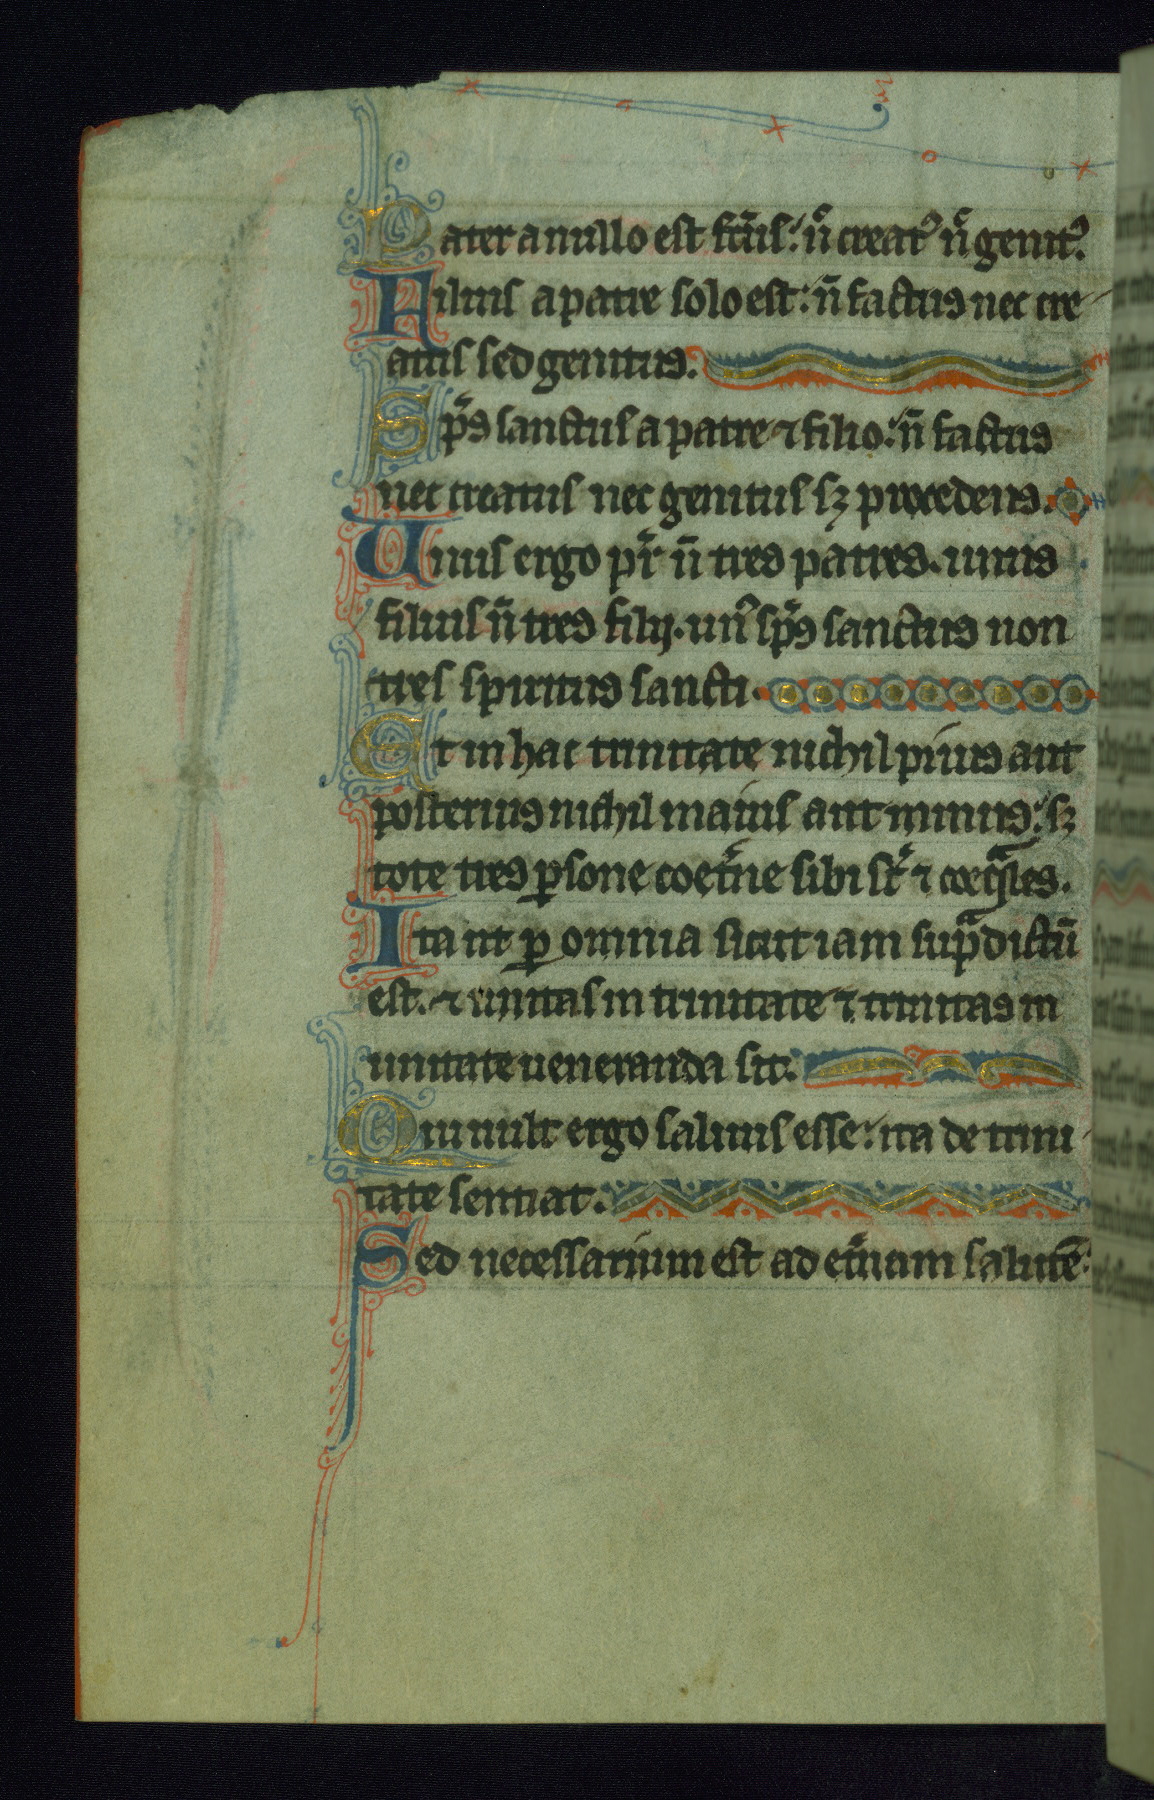 Pater a nullo est fc̄us: n̄ creatꝰ n̄ genitꝰ.
Filius a patre solo est: n̄ factus nec cre-
atus sed genitus.
Sp̄s sanctus a patre ⁊ filio: n̄ factus
nec creatus nec genitus sꝫ procedens.
Unus ergo pr̄ n̄ tres patres. unus
filius n̄ tres filij. unꝰ sp̄s sanctus non
tres spiritus sancti.
Et in hac trinitate nichil prius aut
posterius nichil maius aut minus: sꝫ
tote tres ꝑsone coet̄ne sibi st̄ ⁊ coeq̄les.
Ita ut ꝑ omnia sicut iam sup̄dictū
est. ⁊ unitas in trinitate ⁊ trinitas in
unitate ueneranda sit.
Qui uult ergo saluus esse: ita de trini-
tate sentiat.
Sed necessarium est ad et̄nam salutē: